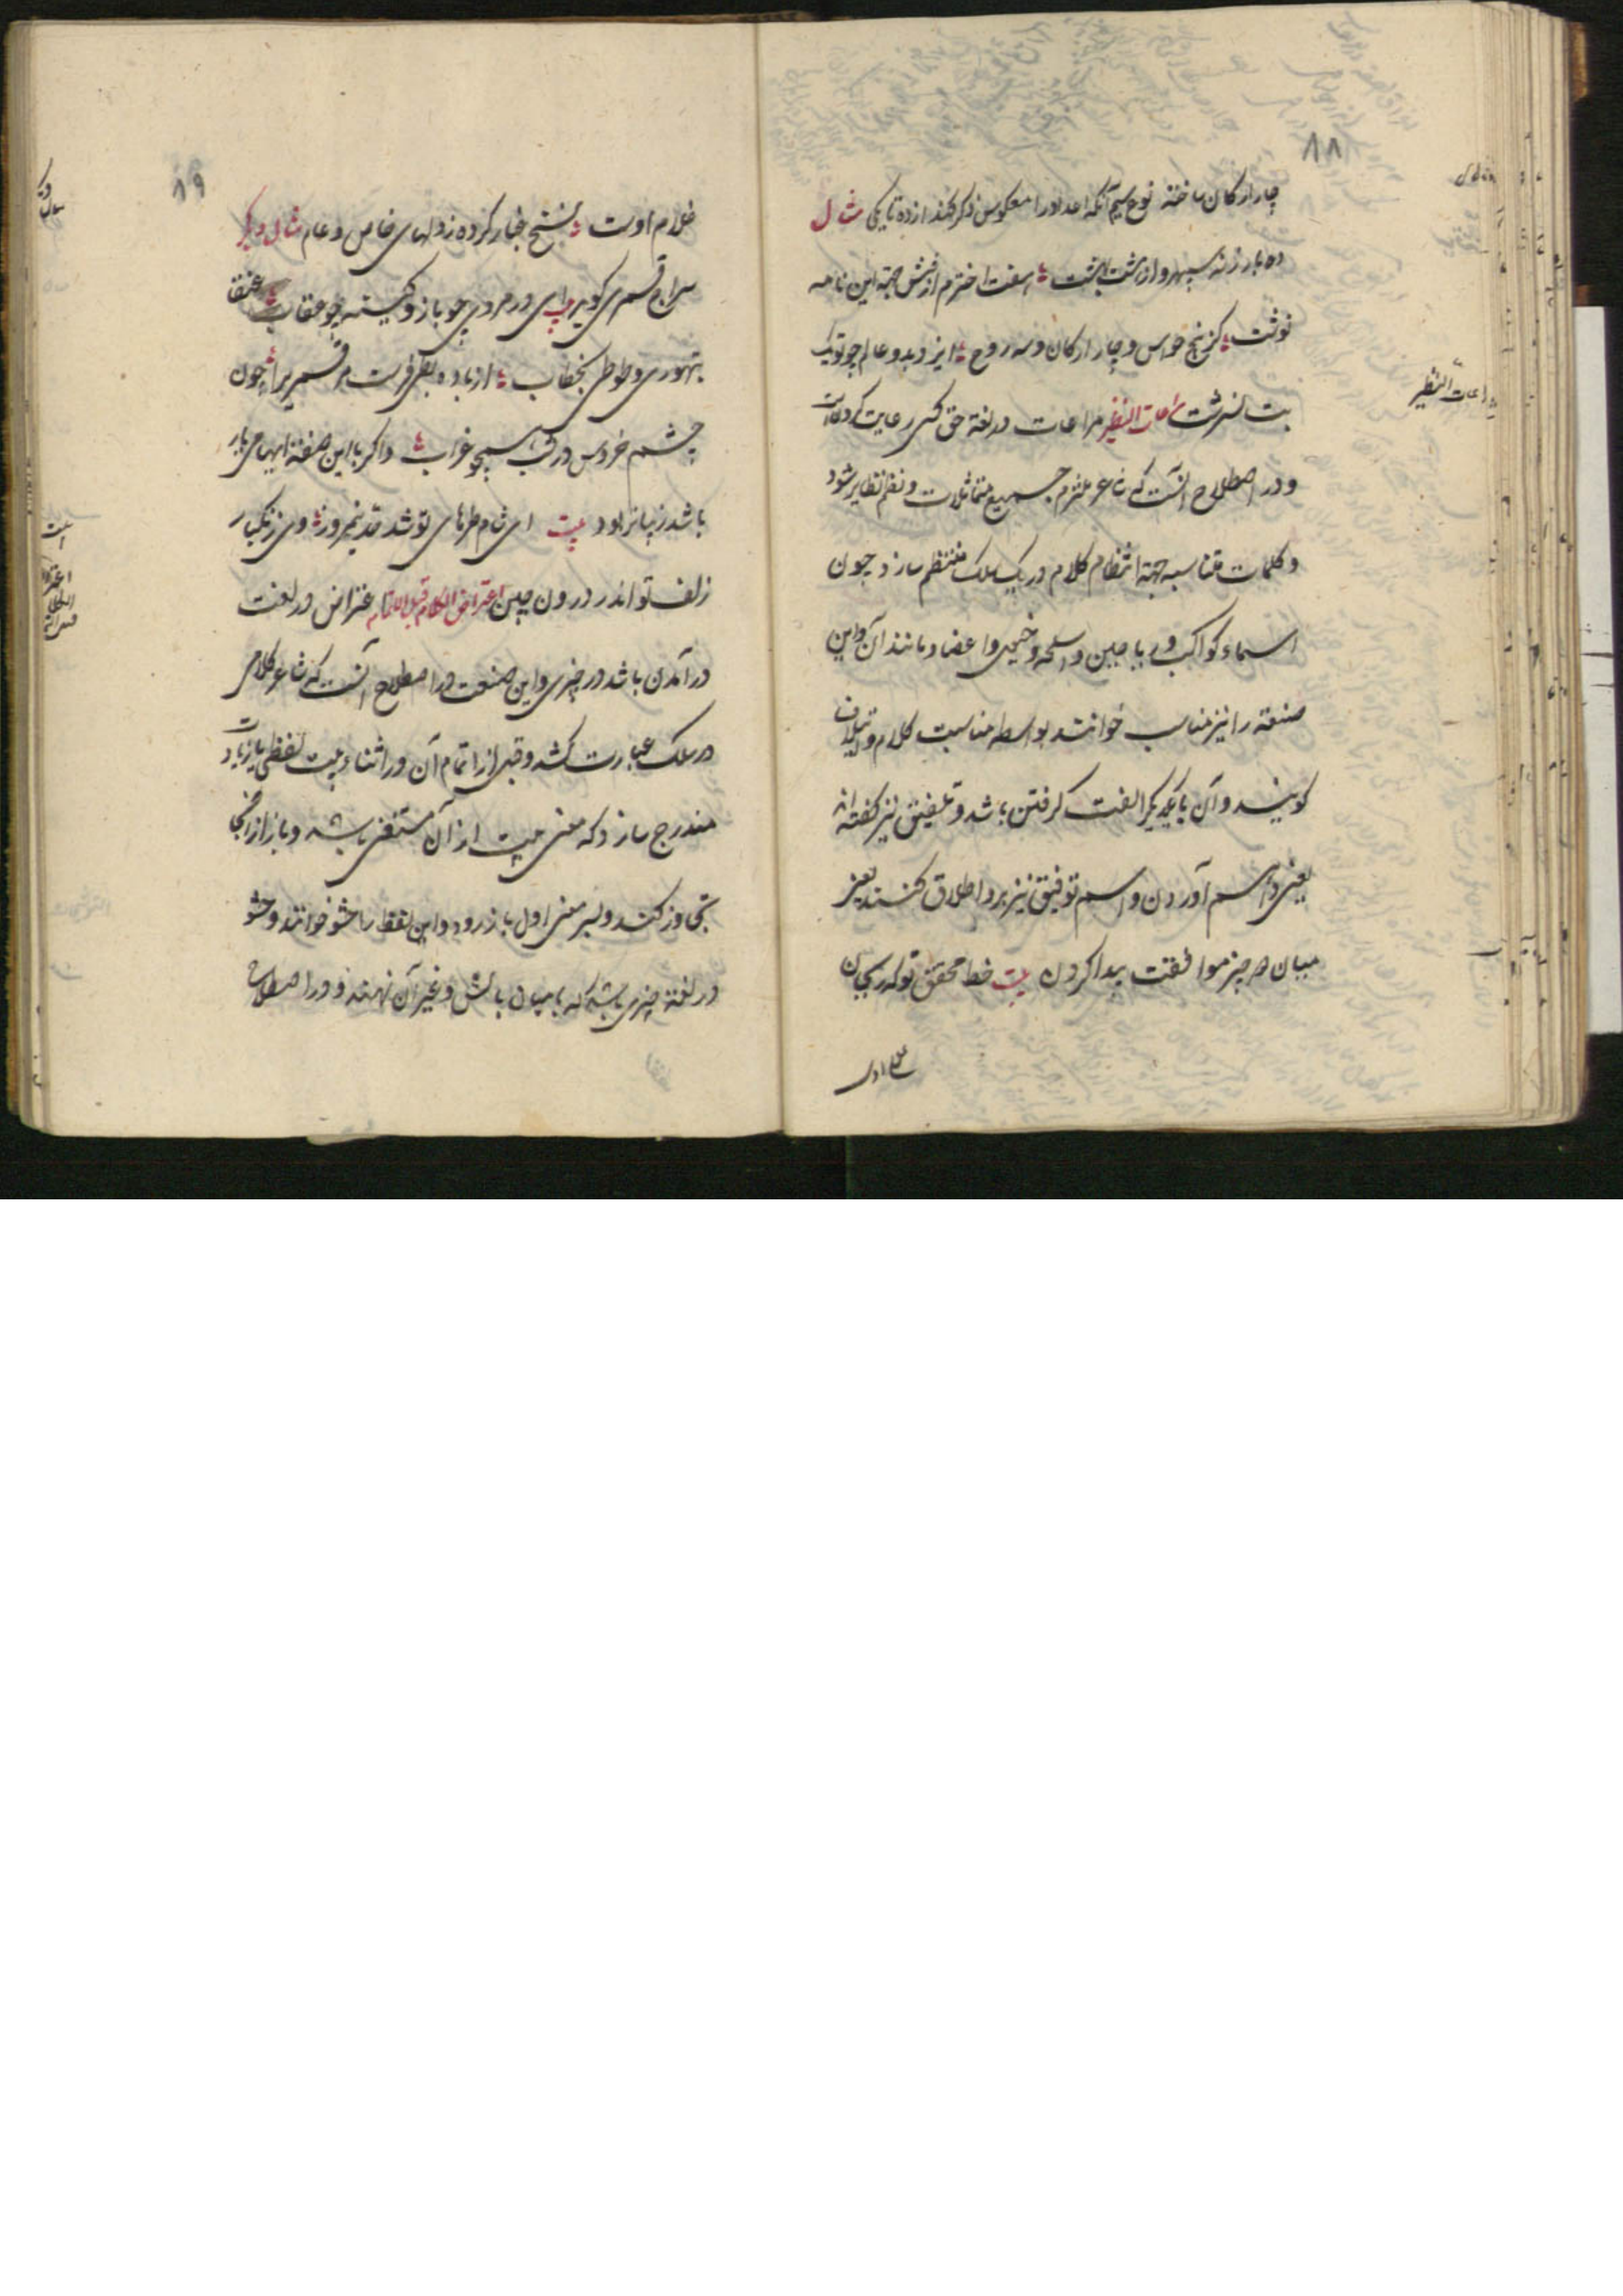 ۸۸
چار ارکان ساخته نوع سیم آنکه اعداد را معکوس ذکر کنند از ده تا یکی مثال
ده بار ز نه سپهر و از هشت بهشت هفت اخترم از شش جهة این نامه
نوشت کز پنج حواس و چار ارکان و سه روح ایزد بدو عالم چو تو یک
بت نسرشت مراعات النظیر مراعات در لغة حق کسی رعایت کردنست
و در اصطلاح آنست که شاعر ملتزم جمیع متماثلات و نظم نظایر شود
و کلمات متناسبه جهة انتظام کلام در یک سلک منتظم سازد چون
اسماء کواکب و ریاحین و اسلحه و خیمی و اعضا و مانند آن و این
صنعة را نیز متناسب خوانند بواسطه مناسبت کلام و ایتلاف
کویند و آن با یکدیگر الفت کرفتن باشد و تلفیق نیز کفته‌اند
یعنی فراهم آوردن و اسم توفیق نیز برو اطلاق کنند یعنی
میان دو چیز موافقت پیدا کردن بیت خط محقق تو که ریحان
غلام اوست
مراعات النظیر
۸۹
غلام اوست نسخ غبار کرده ز دلهای خاص و عام مثال دیگر
سراج قمری کوید ای در مردی چو باز و کینه چو عقاب عنقا
بتهوری و طوطی بخطاب از باده بط فرست مر قمری را چون
چشم خروس در شب همچو غراب و اکر با این صنعة ایهامی یار
باشد زیباتر بود بیت ای شام طرهای تو شد قد نیمروز وی زنکبار
زلف تو اندر درون چین اعتراض الکلام قبل الاتمام اعتراض در لغت
در آمدن باشد در چیزی و این صنعت در اصطلاح آنست که شاعر کلامی
در سلک عبارت کشد و قبل از اتمام آن در اثناء بیت لفظی یا زیادت
مندرج سازد که معنی بیت از آن مستغنی باشد و باز از انجا
تجاوز کند و بسر معنی اول باز رود و این لفظ را حشو خوانند و حشو
در لغة چیزی باشد که با میان بالش و غیر آن نهند و در اصطلاح